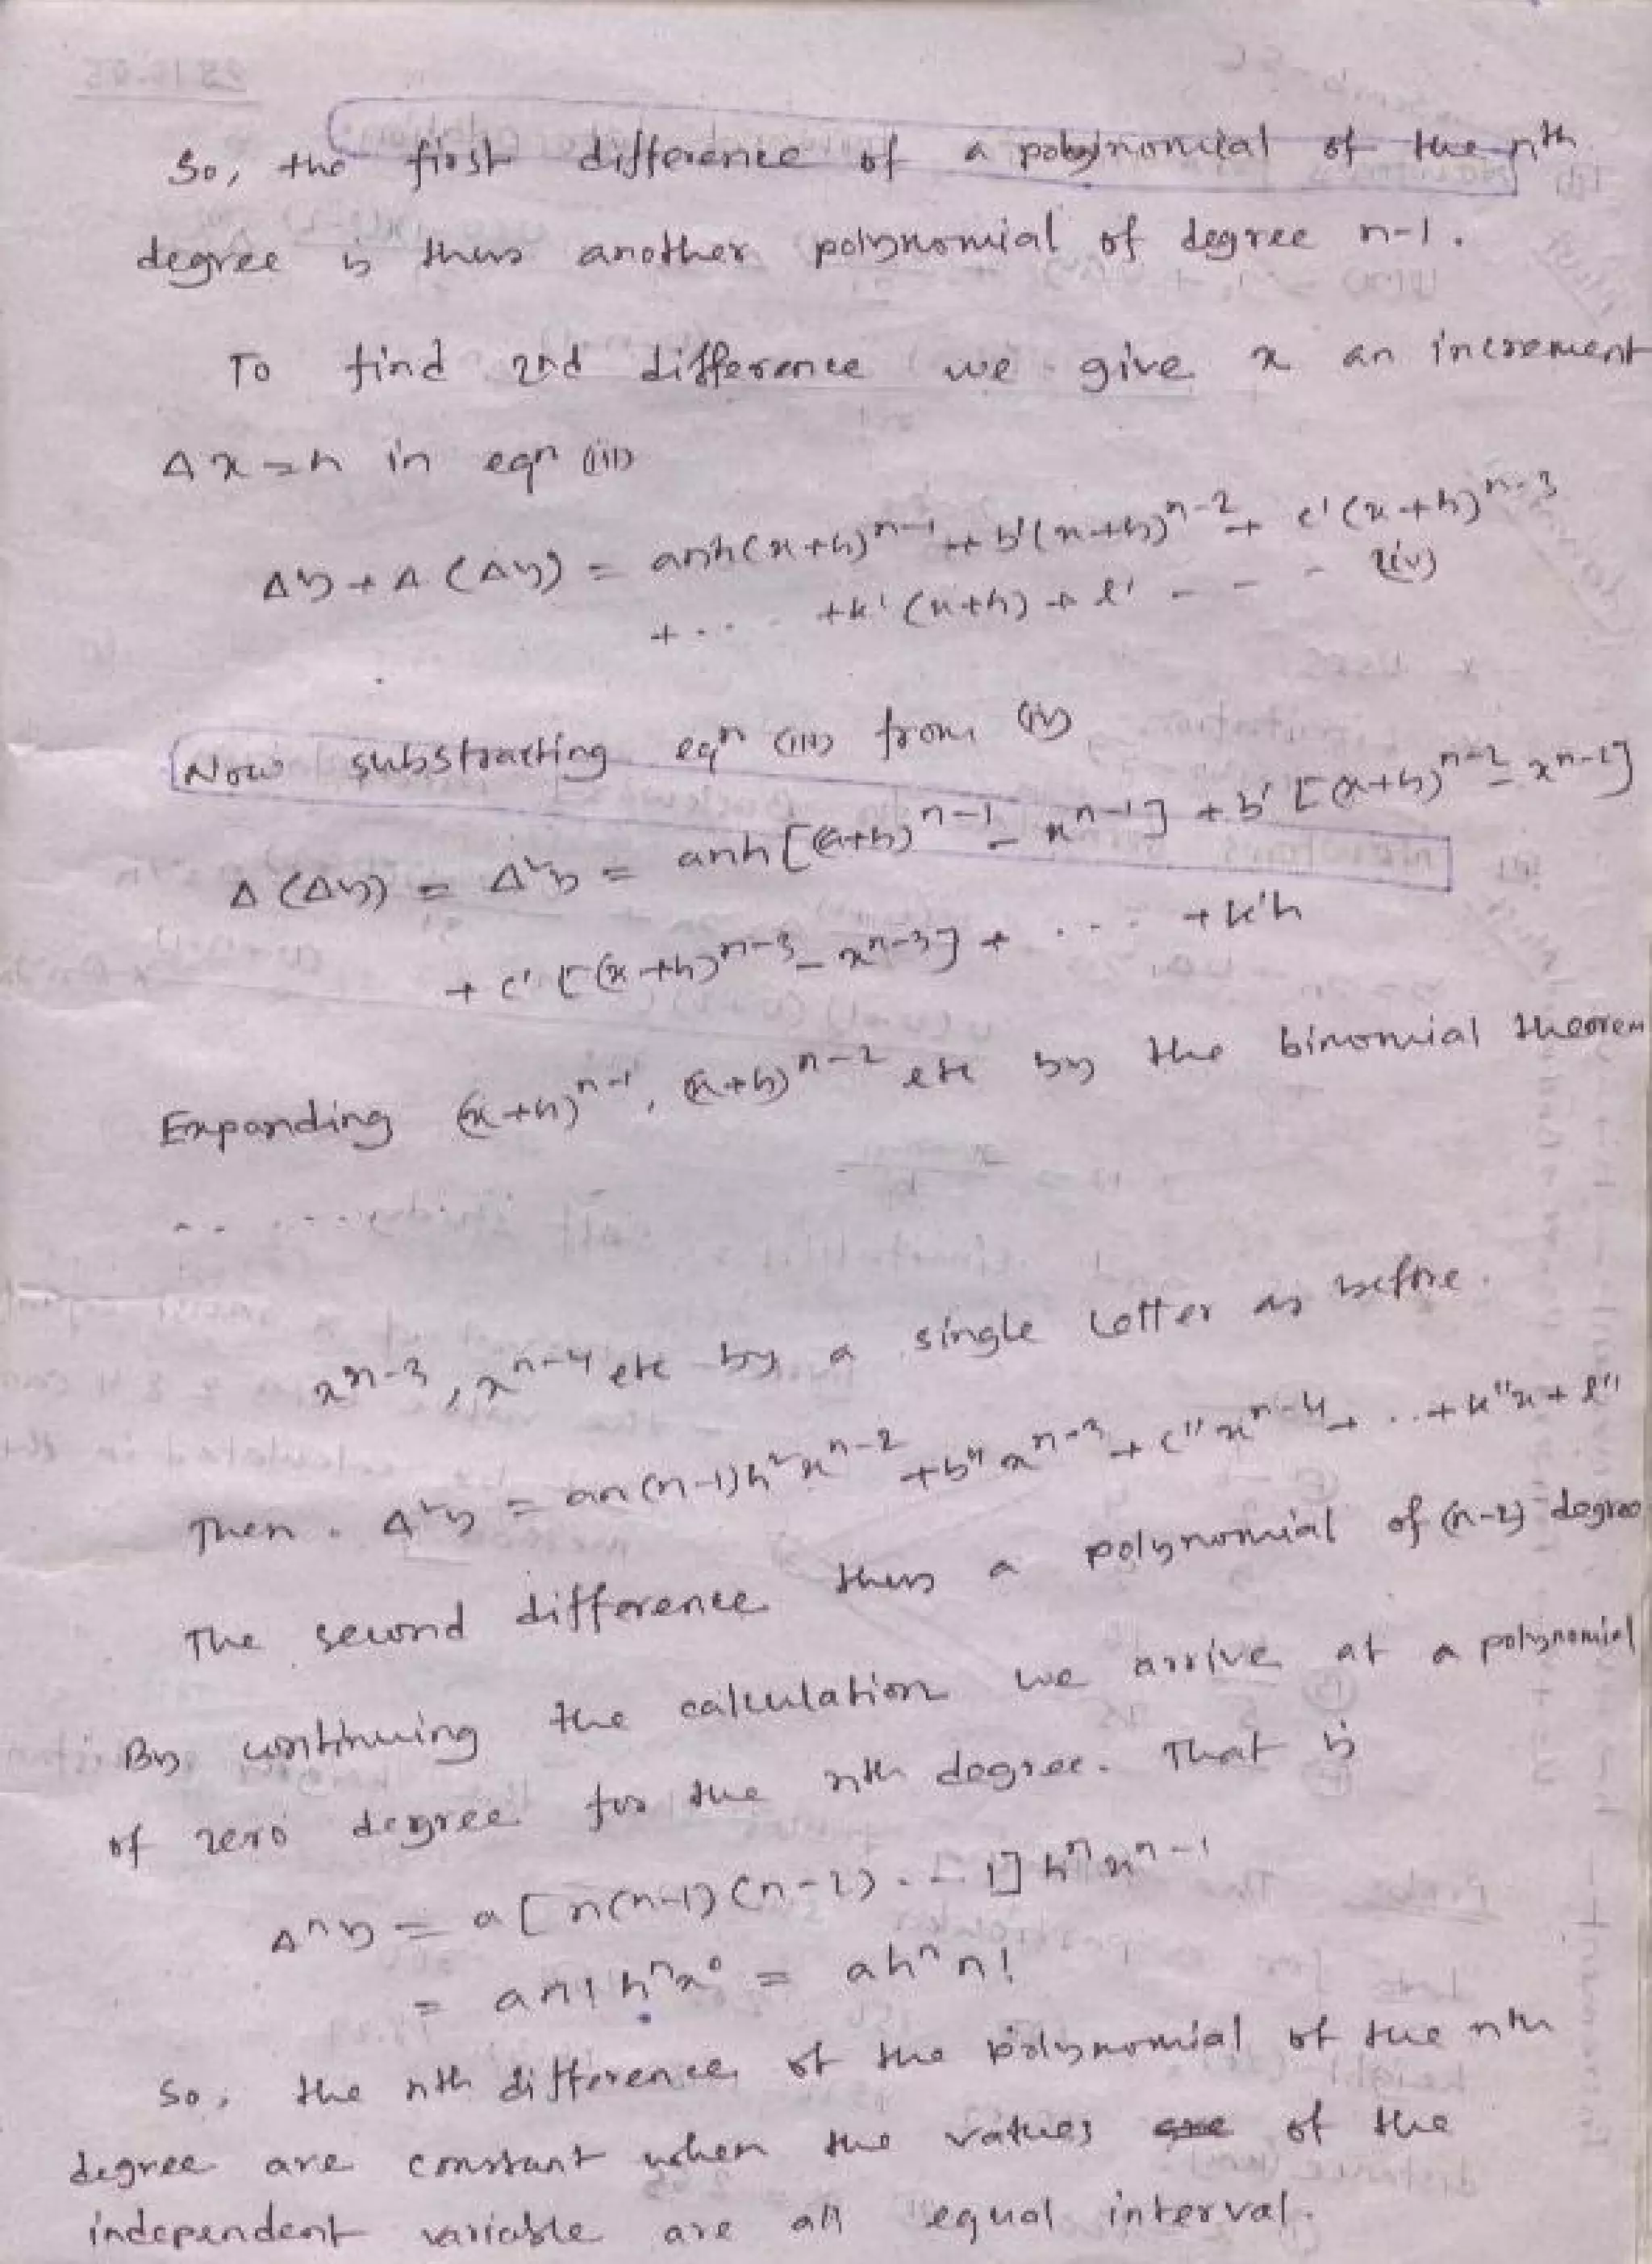 So, the first difference of a polynomial of the nth
degree is thus another polynomial of degree n-1.
To find 2nd difference we give x an increment
Δx=h in eqn (iii)
Δy + Δ(Δy) = anh(x+h)^n-1 + b'(x+h)^n-2 + c'(x+h)^n-3
+ ... +k'(x+h) + l' - - - (iv)
Now substracting eqn (iii) from (iv)
Δ(Δy) = Δ²y = anh[(x+h)^n-1 - x^n-1] + b'[(x+h)^n-2 - x^n-2]
+ c'[(x+h)^n-3 - x^n-3] + ... +k'h
Expanding (x+h)^n-1, (x+h)^n-2 etc by the binomial theorem
.. ......
x^n-3, x^n-4 etc by a single letter as before.
Then. Δ²y = an(n-1)h²x^n-2 + b''x^n-3 + c''x^n-4 + ..+k''x + l''
The second difference thus a polynomial of (n-2) degree
By continuing the calculation we arrive at a polynomial
of zero degree for the nth degree. That is
Δ^n y = a[n(n-1)(n-2)...1]h^n x^n-1
= an!h^n x^0 = ah^n n!
So, the nth difference of the polynomial of the nth
degree are constant when the values of the
independent variable are at equal interval.